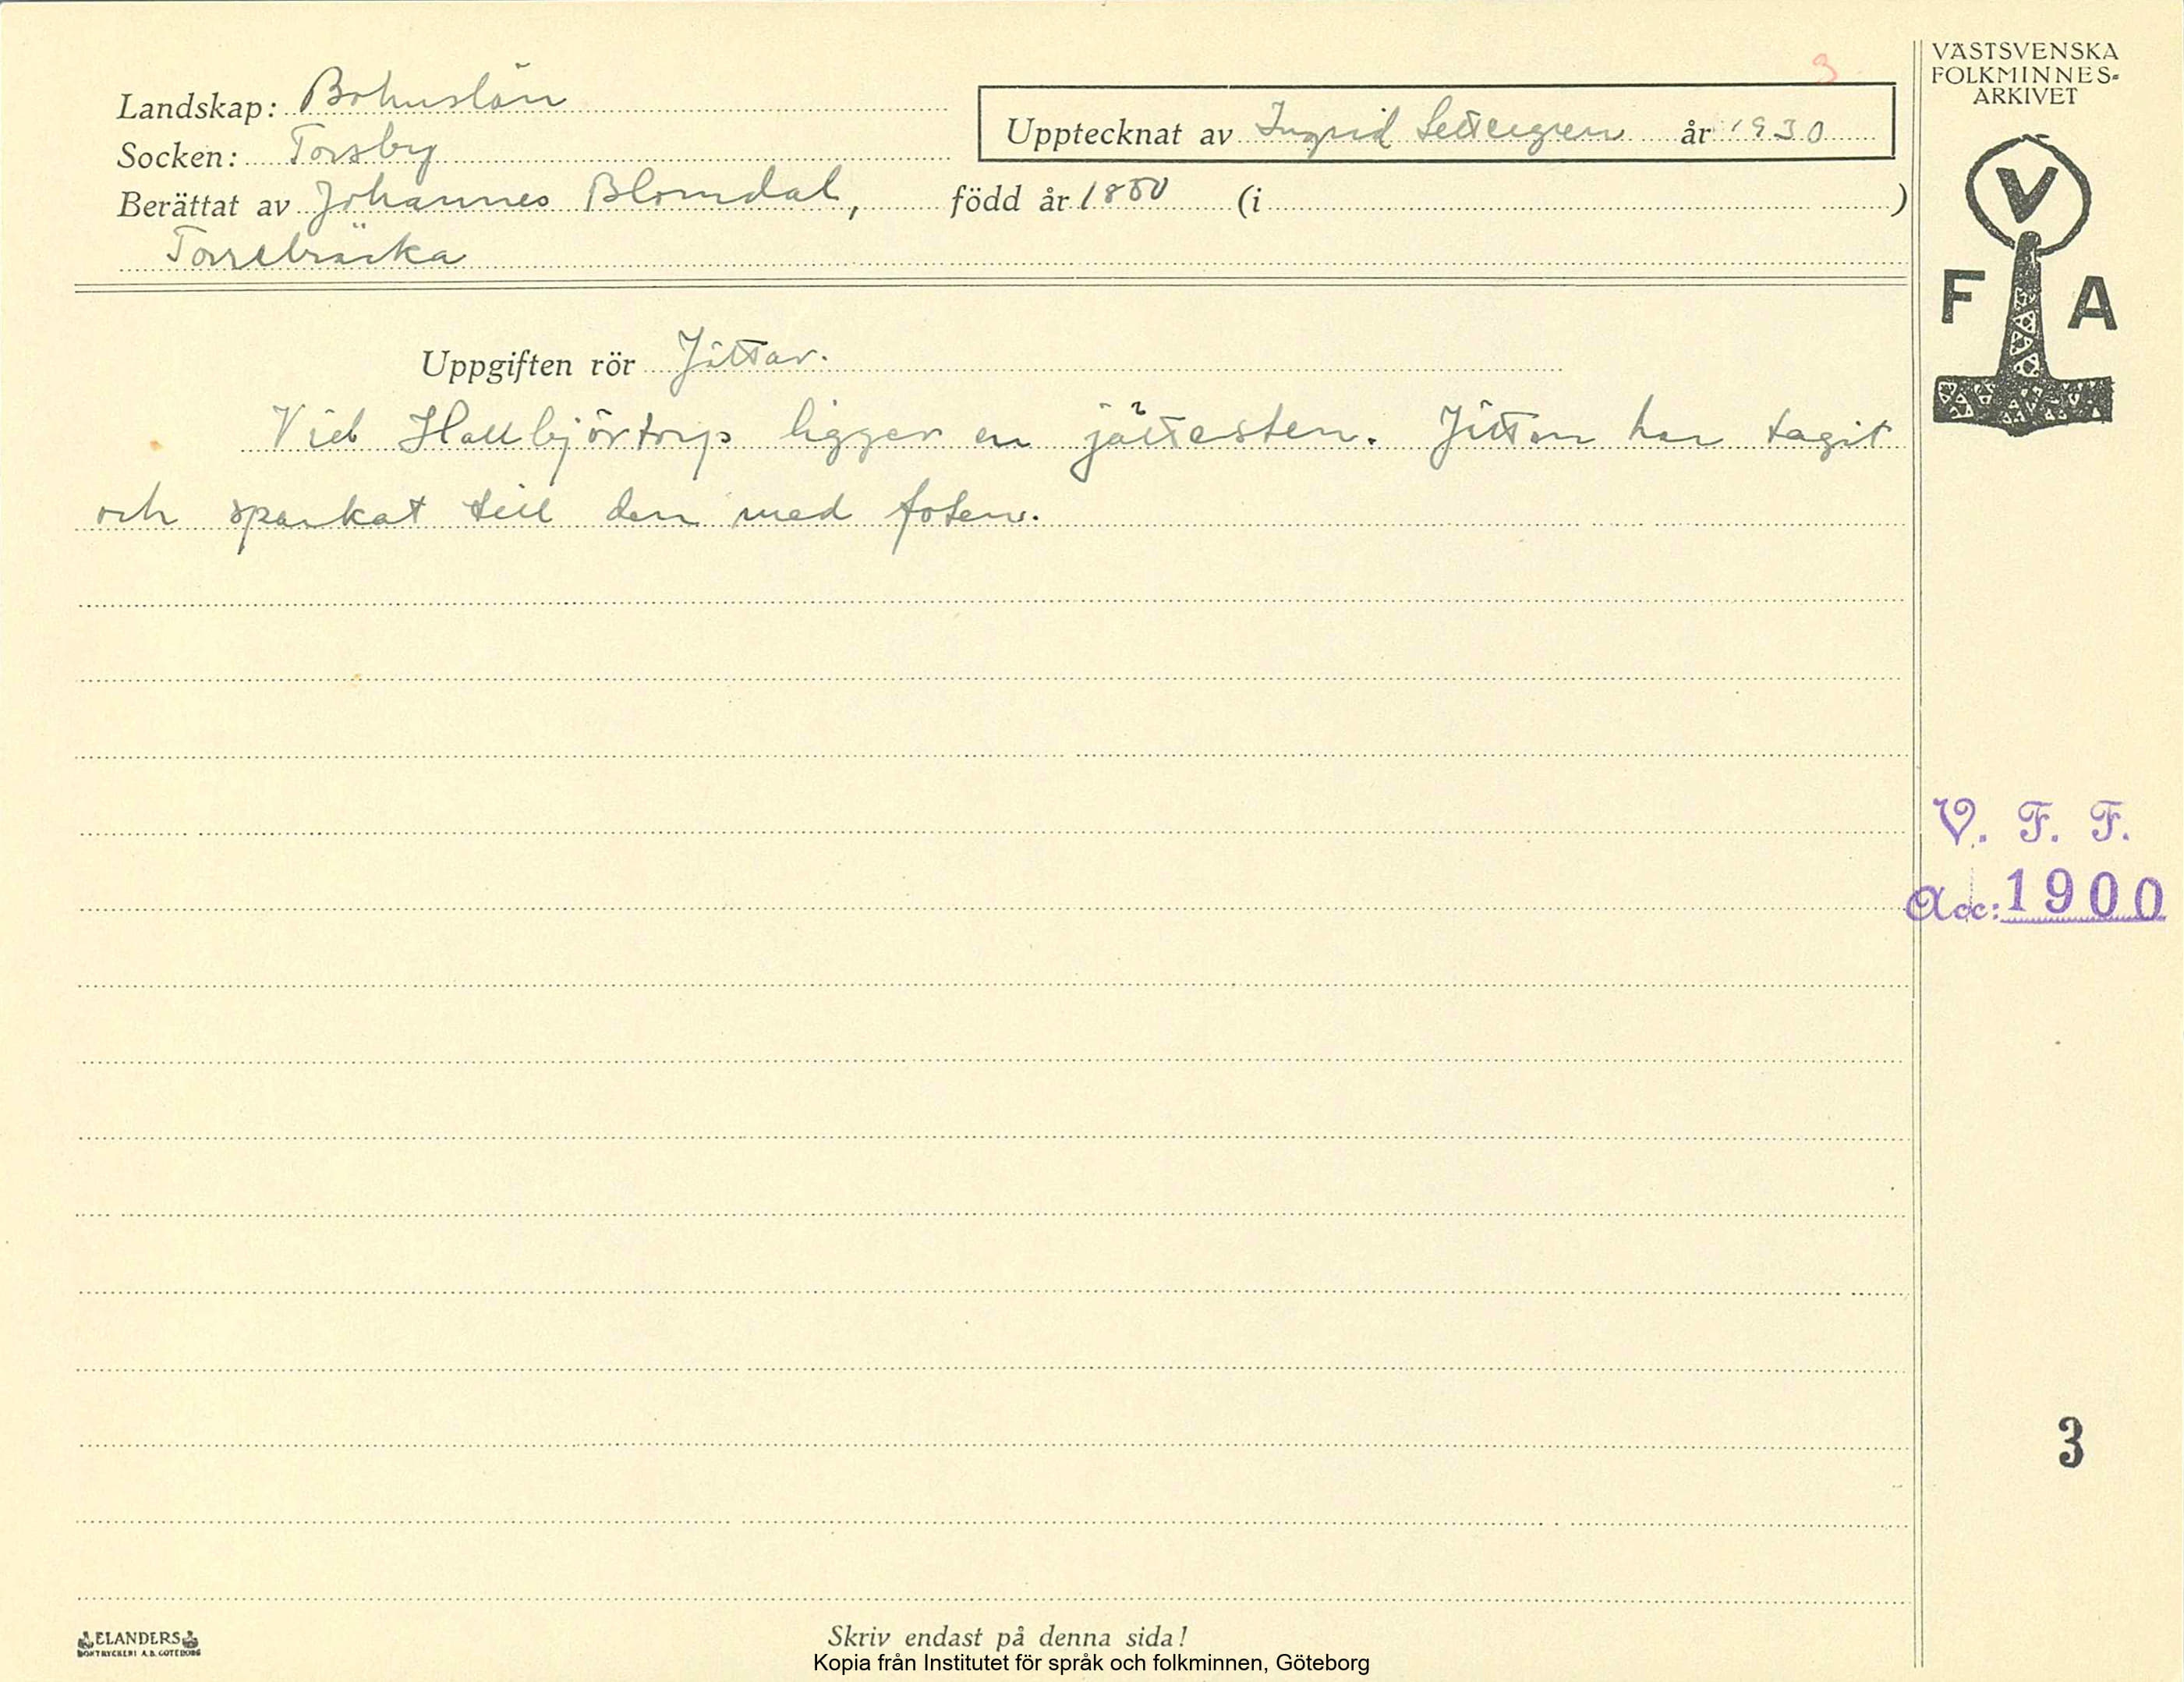 3
VÄSTSVENSKA
FOLKMINNES-
ARKIVET
Landskap: Bohuslän
Upptecknat av Ingrid Settergren år 1930
Socken: Torsby
Berättat av Johannes Blomdal, född år 1850 (i )
Torrebräcka
V
F A
Uppgiften rör Jättar.
Vid Hallbjörtorp ligger en jättesten. Jätten har tagit
och sparkat till den med foten.
V. F. F.
Acc: 1900
3
ELANDERS
BOKTRYCKERI A.B. GÖTEBORG
Skriv endast på denna sida!
Kopia från Institutet för språk och folkminnen, Göteborg